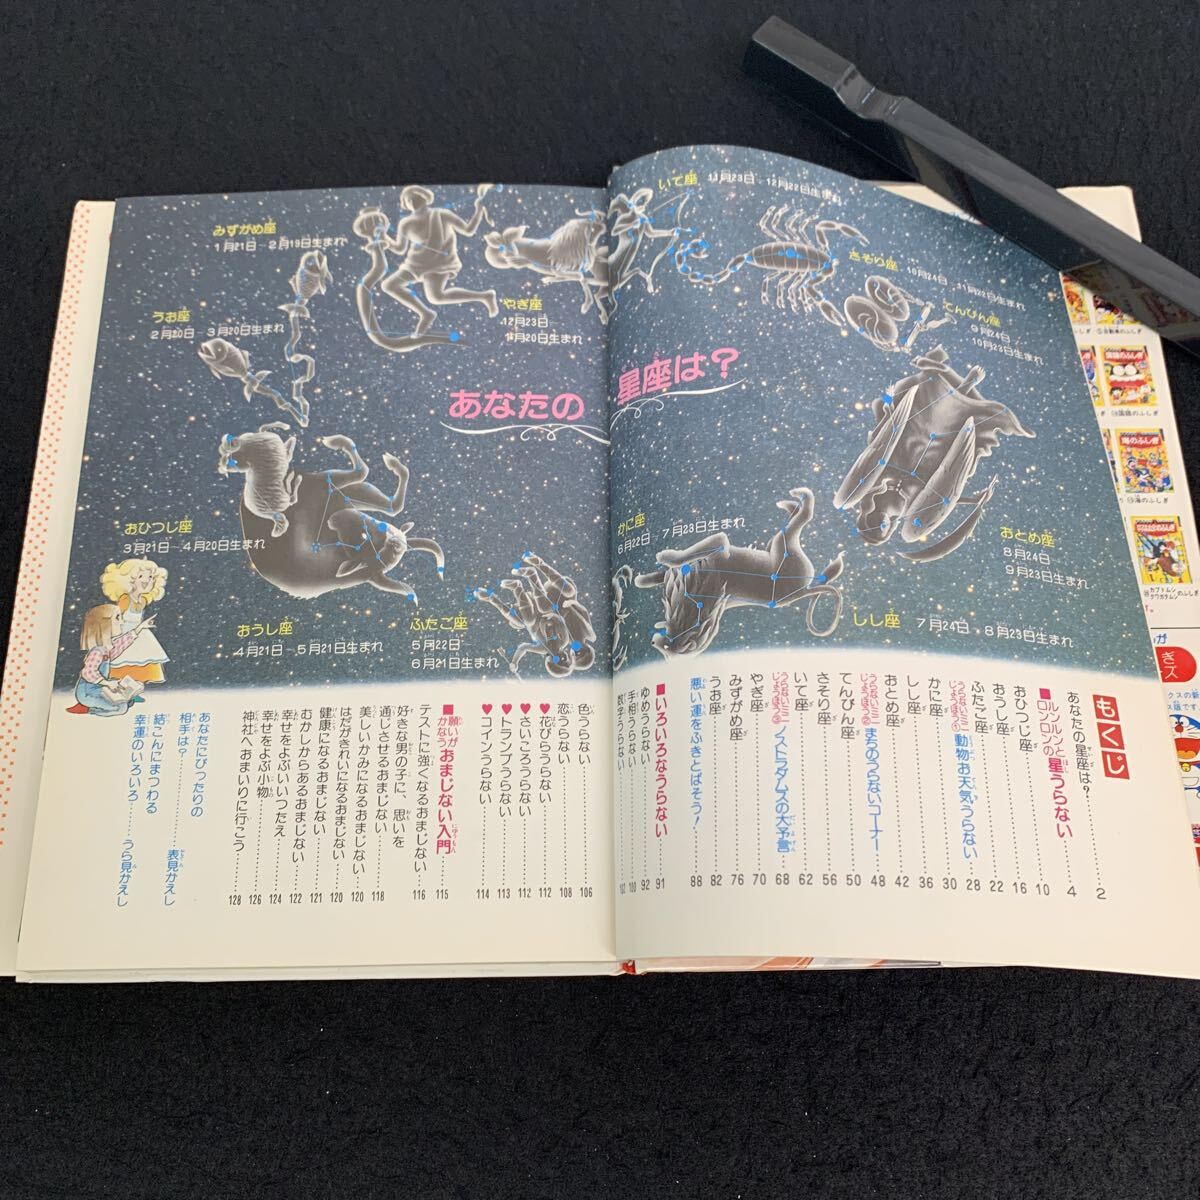 あなたの星座は?
みずがめ座
1月21日−2月19日生まれ
うお座
2月20日−3月20日生まれ
やぎ座
12月23日
1月20日生まれ
おひつじ座
3月21日−4月20日生まれ
おうし座
4月21日−5月21日生まれ
ふたご座
5月22日
6月21日生まれ
いて座 11月23日−12月22日生まれ
さそり座 10月24日−11月22日生まれ
てんびん座
9月24日
10月23日生まれ
かに座
6月22日−7月23日生まれ
おとめ座
8月24日
9月23日生まれ
しし座 7月24日−8月23日生まれ
もくじ
あなたの星座は?……2
■ルンルンとロンロンの星うらない……4
おひつじ座……10
おうし座……16
ふたご座……22
うらないミニじょうほう① 動物お天気うらない……28
かに座……30
しし座……36
おとめ座……42
うらないミニじょうほう② まちのうらないコーナー……48
てんびん座……50
さそり座……56
いて座……62
うらないミニじょうほう③ ノストラダムスの大予言……68
やぎ座……70
みずがめ座……76
うお座……82
悪い運をふきとばそう!……88
■いろいろなうらない……91
ゆめうらない……92
手相うらない……100
数字うらない……102
色うらない……106
恋うらない……108
♥花びらうらない……112
♥さいころうらない……112
♥トランプうらない……113
♥コインうらない……114
■願いがかなうおまじない入門……115
テストに強くなるおまじない……116
好きな男の子に、思いを
通じさせるおまじない……118
美しいかみになるおまじない……120
はだがきれいになるおまじない……120
健康になるおまじない……121
むかしからあるおまじない……122
幸せをよぶいいつたえ……122
幸せをよぶ小物……124
神社へおまいりに行こう……126
128
あなたにぴったりの
相手は?……表見かえし
結こんにまつわる
幸運のいろいろ……うら見かえし
海のふしぎ